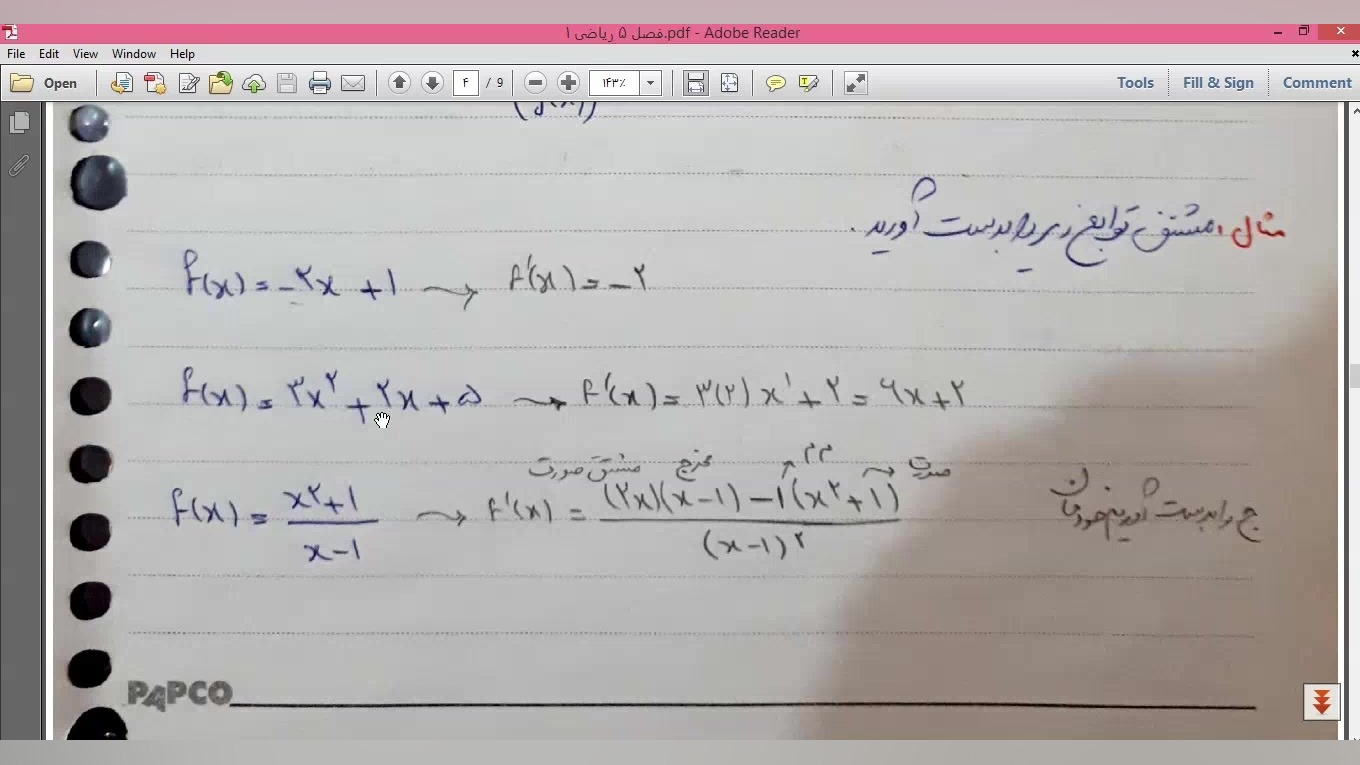 فصل ۵ ریاضی ۱.pdf - Adobe Reader
File Edit View Window Help
Open ۴ / 9 ۱۴۳٪ Tools Fill & Sign Comment
مثال: مشتق توابع زیر را بدست آورید.
f(x) = -۲x + ۱ → f'(x) = -۲
f(x) = ۳x^۲ + ۲x + ۵ → f'(x) = ۳(۲)x^۱ + ۲ = ۶x + ۲
مشتق صورت مخرج م م صورت
f(x) = (x^۲+۱)/(x-۱) → f'(x) = ((۲x)(x-۱) - ۱(x^۲+۱))/(x-۱)^۲ ج را بدست آورید خودتان
PAPCO